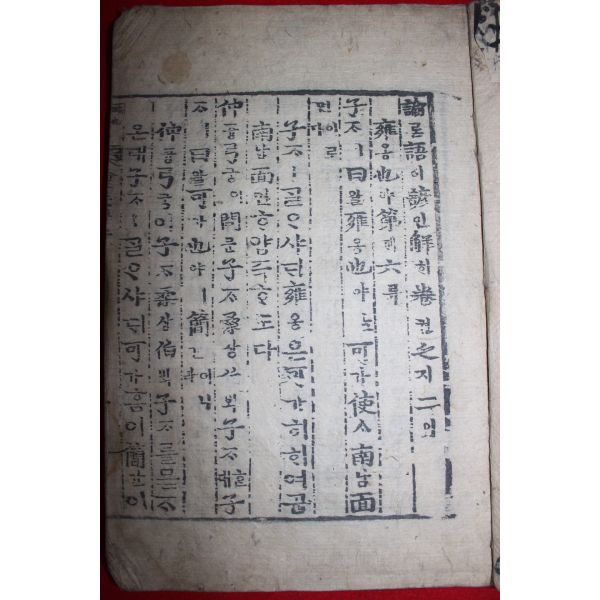 論론語어諺언解ᄒᆡ卷권之지二이
雍옹也야第뎨六륙
子ᄌᆞㅣ曰왈雍옹也야ᄂᆞᆫ可가使ᄉᆞ南남面
면이로다
子ᄌᆞㅣᄀᆞᆯᄋᆞ샤ᄃᆡ雍옹은可가히ᄒᆞ여곰
南남面면ᄒᆞ얌즉ᄒᆞ도다
仲듕弓궁이問문子ᄌᆞ桑상伯ᄇᆡᆨ子ᄌᆞᄒᆞᆫ대子
ᄌᆞㅣ曰왈可가也야ㅣ簡간
仲듕弓궁이子ᄌᆞ桑상伯ᄇᆡᆨ子ᄌᆞ를묻ᄌᆞ
온대子ᄌᆞㅣᄀᆞᆯᄋᆞ샤ᄃᆡ可가홈이簡간이